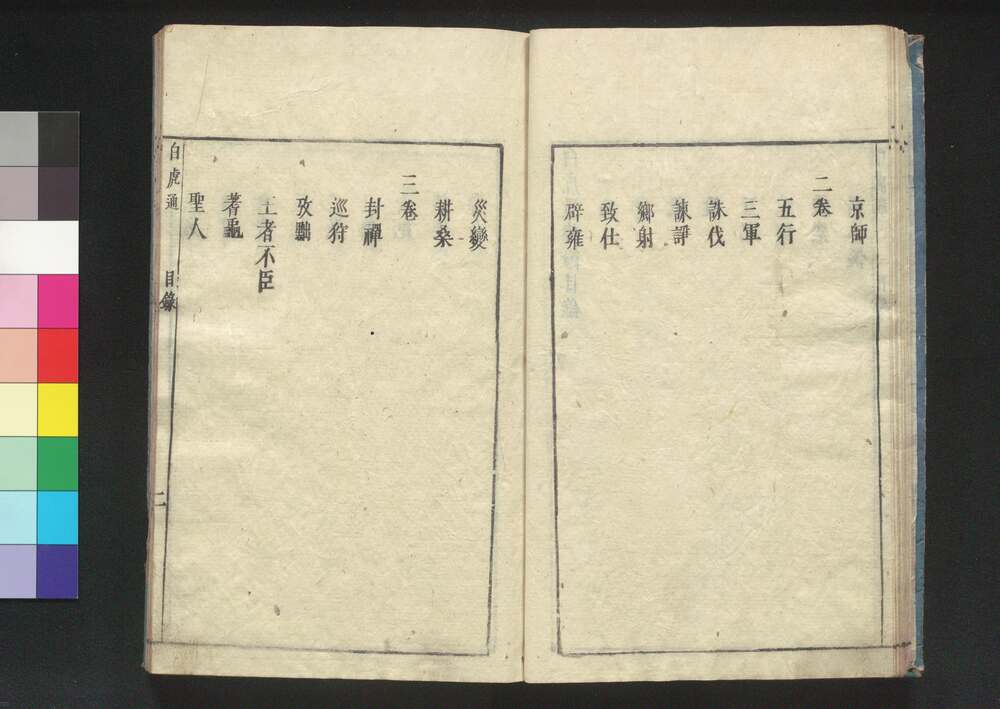 京師
二卷
五行
三軍
誅伐
諫諍
鄉射
致仕
辟雍
災變
耕桑
三卷
封禪
巡狩
攷黜
王者不臣
蓍龜
聖人
白虎通
目錄
二